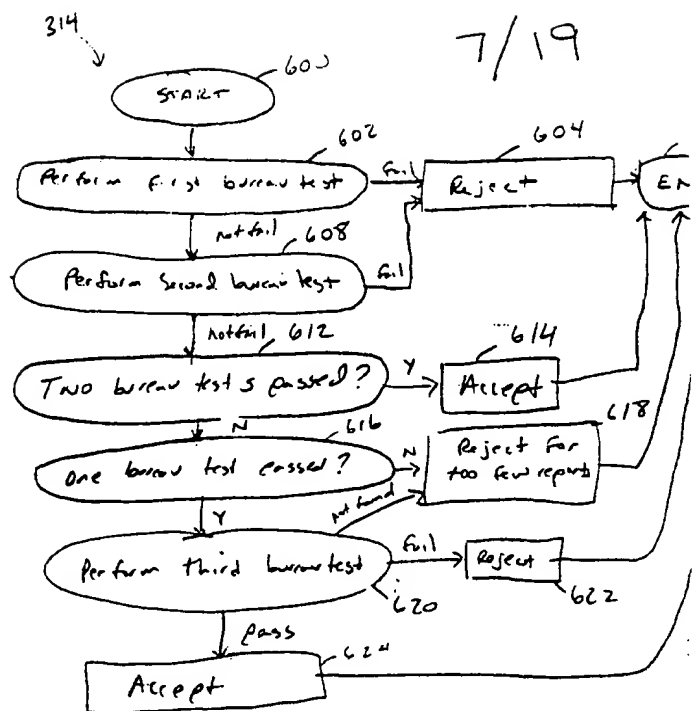 314
7/19
600
START
602
604
Perform First bureau test
fail
Reject
EN
not fail
608
Perform Second bureau test
fail
not fail
612
614
Two bureau tests passed?
Y
Accept
N
616
618
One bureau test passed?
N
Reject For
too few reports
Y
not found
Perform third bureau test
fail
Reject
620
622
pass
624
Accept